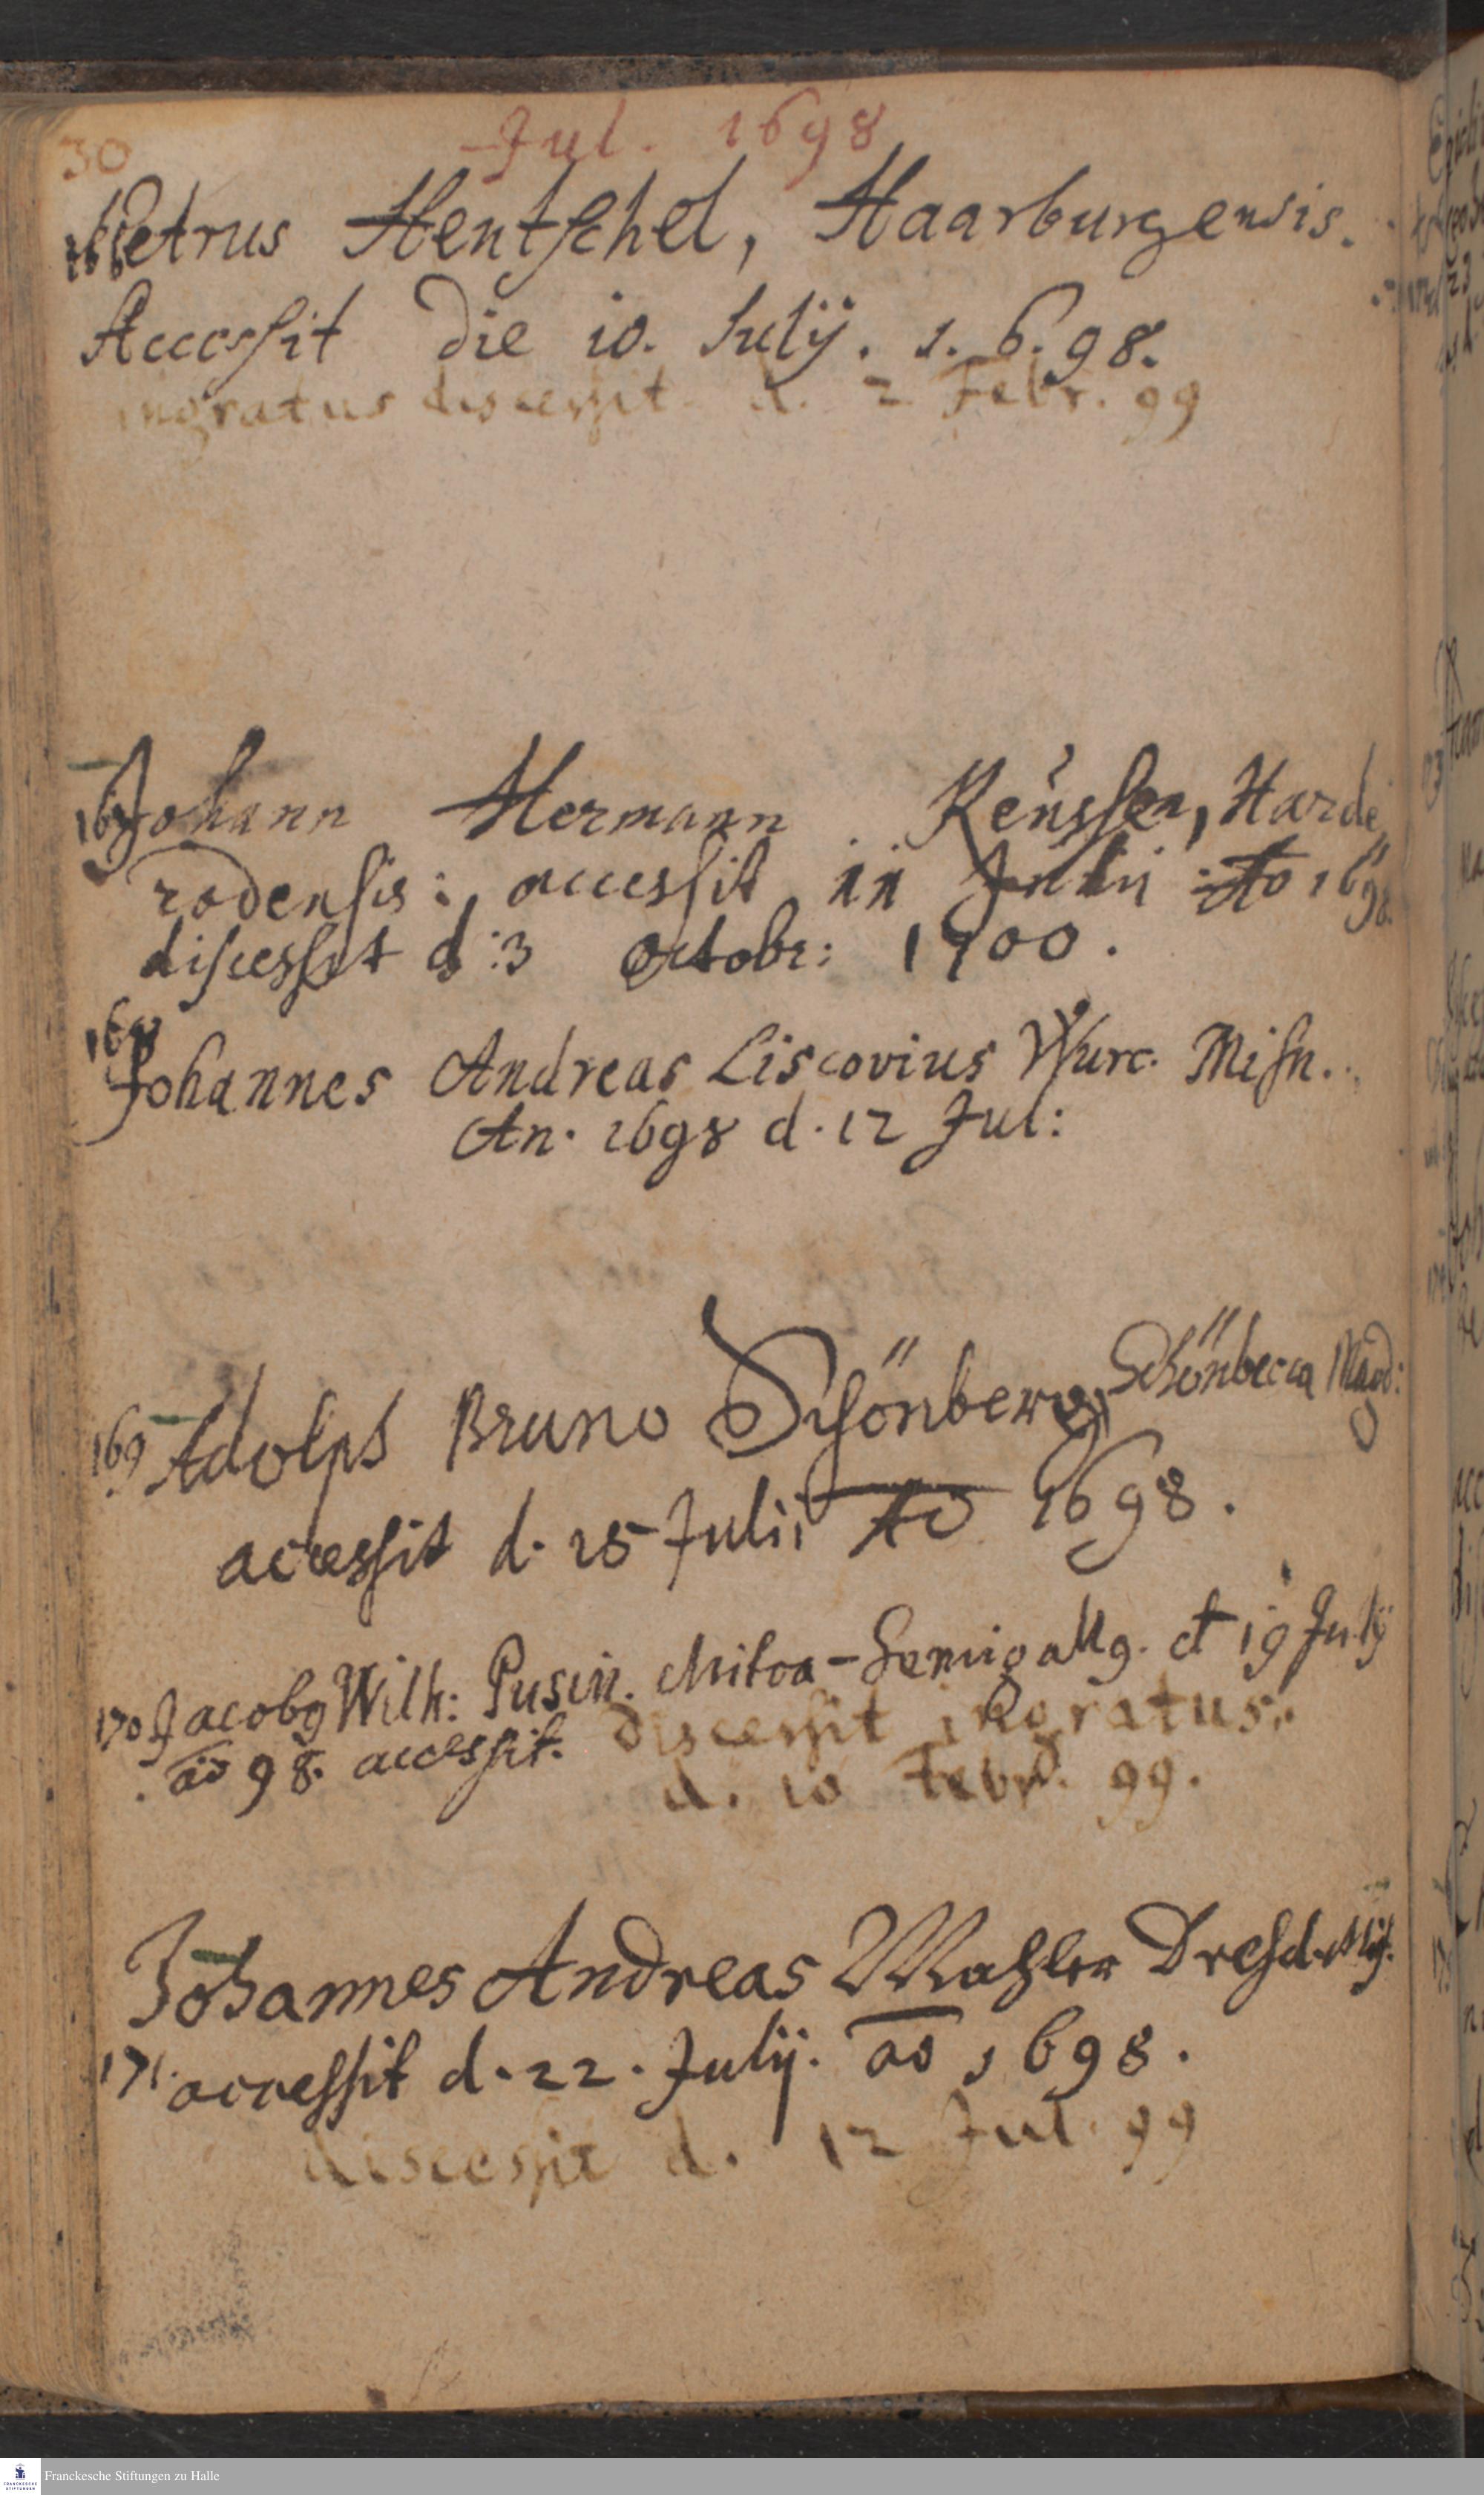 30 Jul. 1698
166 Petrus Hentschel, Haarburgensis.
Accessit die 10. Julij. 1.6.98.
ingratus discessit d. 2 Febr. 99
167 Johann Hermann Reussen, Harde
rodensis: accessit in Julii Ao 1698.
discessit d:3 octobr: 1700.
168
Johannes Andreas Liscovius Wurc. Misn.
An. 1698 d. 12 Jul:
169 Adolph Bruno Schönberg, Schönbecca Magd:
accessit d. 15 Julii Ao 1698.
170 Jacobg Wilh: Pusin. Mitoa-Semigallg. d 19 Julij
ao 98. accessit. discessit ingratus.
d. 10 Febr. 99.
Johannes Andreas Mahler Dresd. Mis.
171. accessit d. 22. Julij. ao 1698.
discessit d. 12 Jul. 99
Franckesche Stiftungen zu Halle